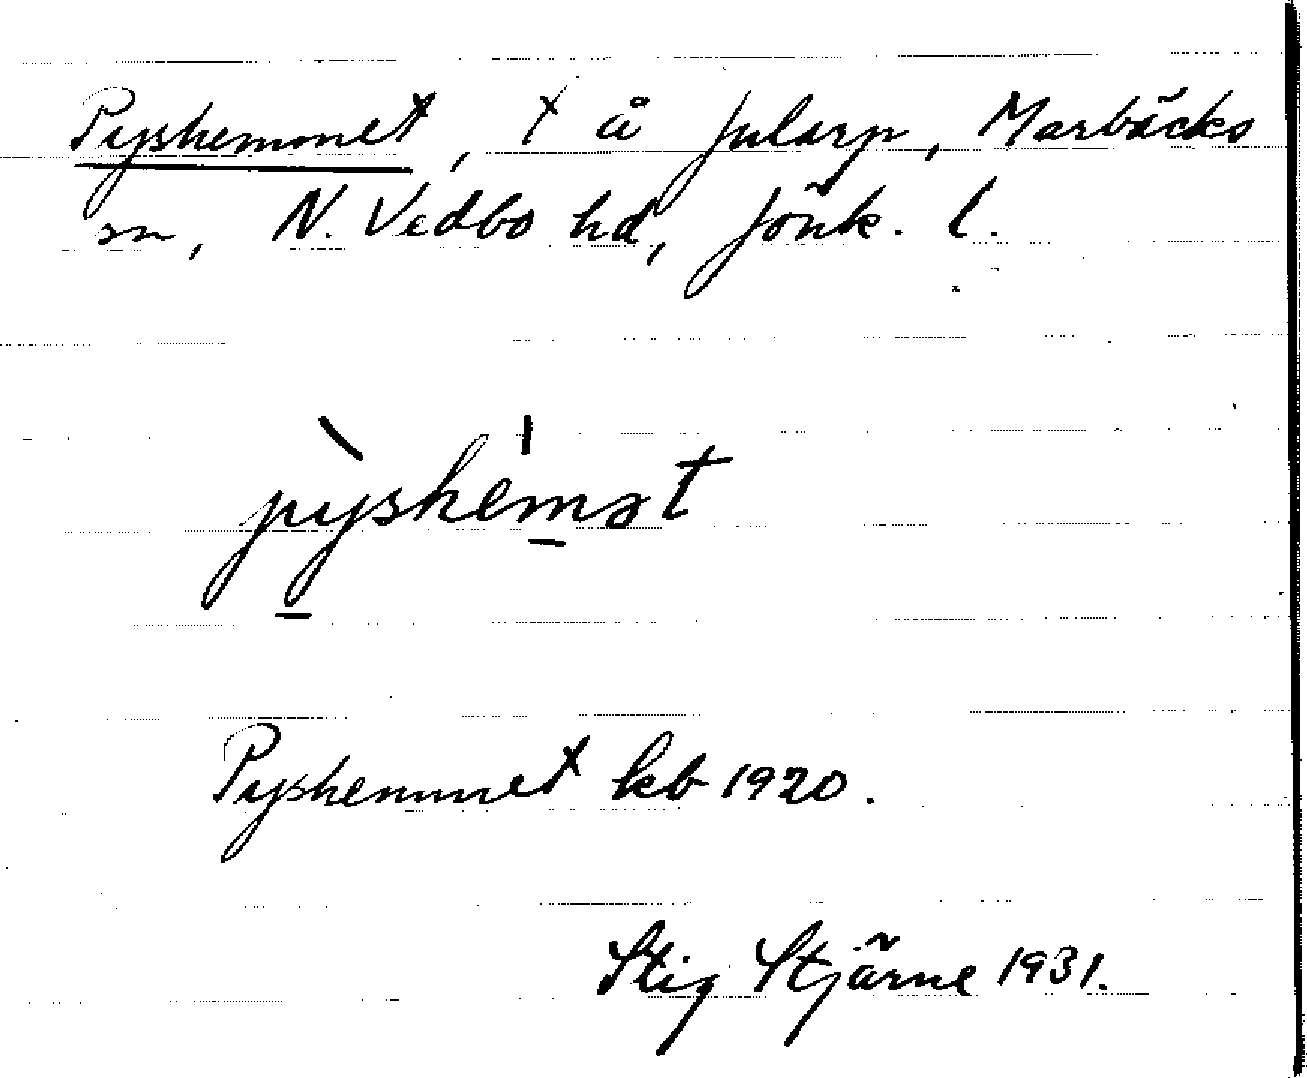 Pyshemmet, t å Jularp, Marbäcks
sn, N. Vedbo hd, Jönk. l.
pỳshémət
Pyshemmet kb 1920.
Stig Stjärne 1931.